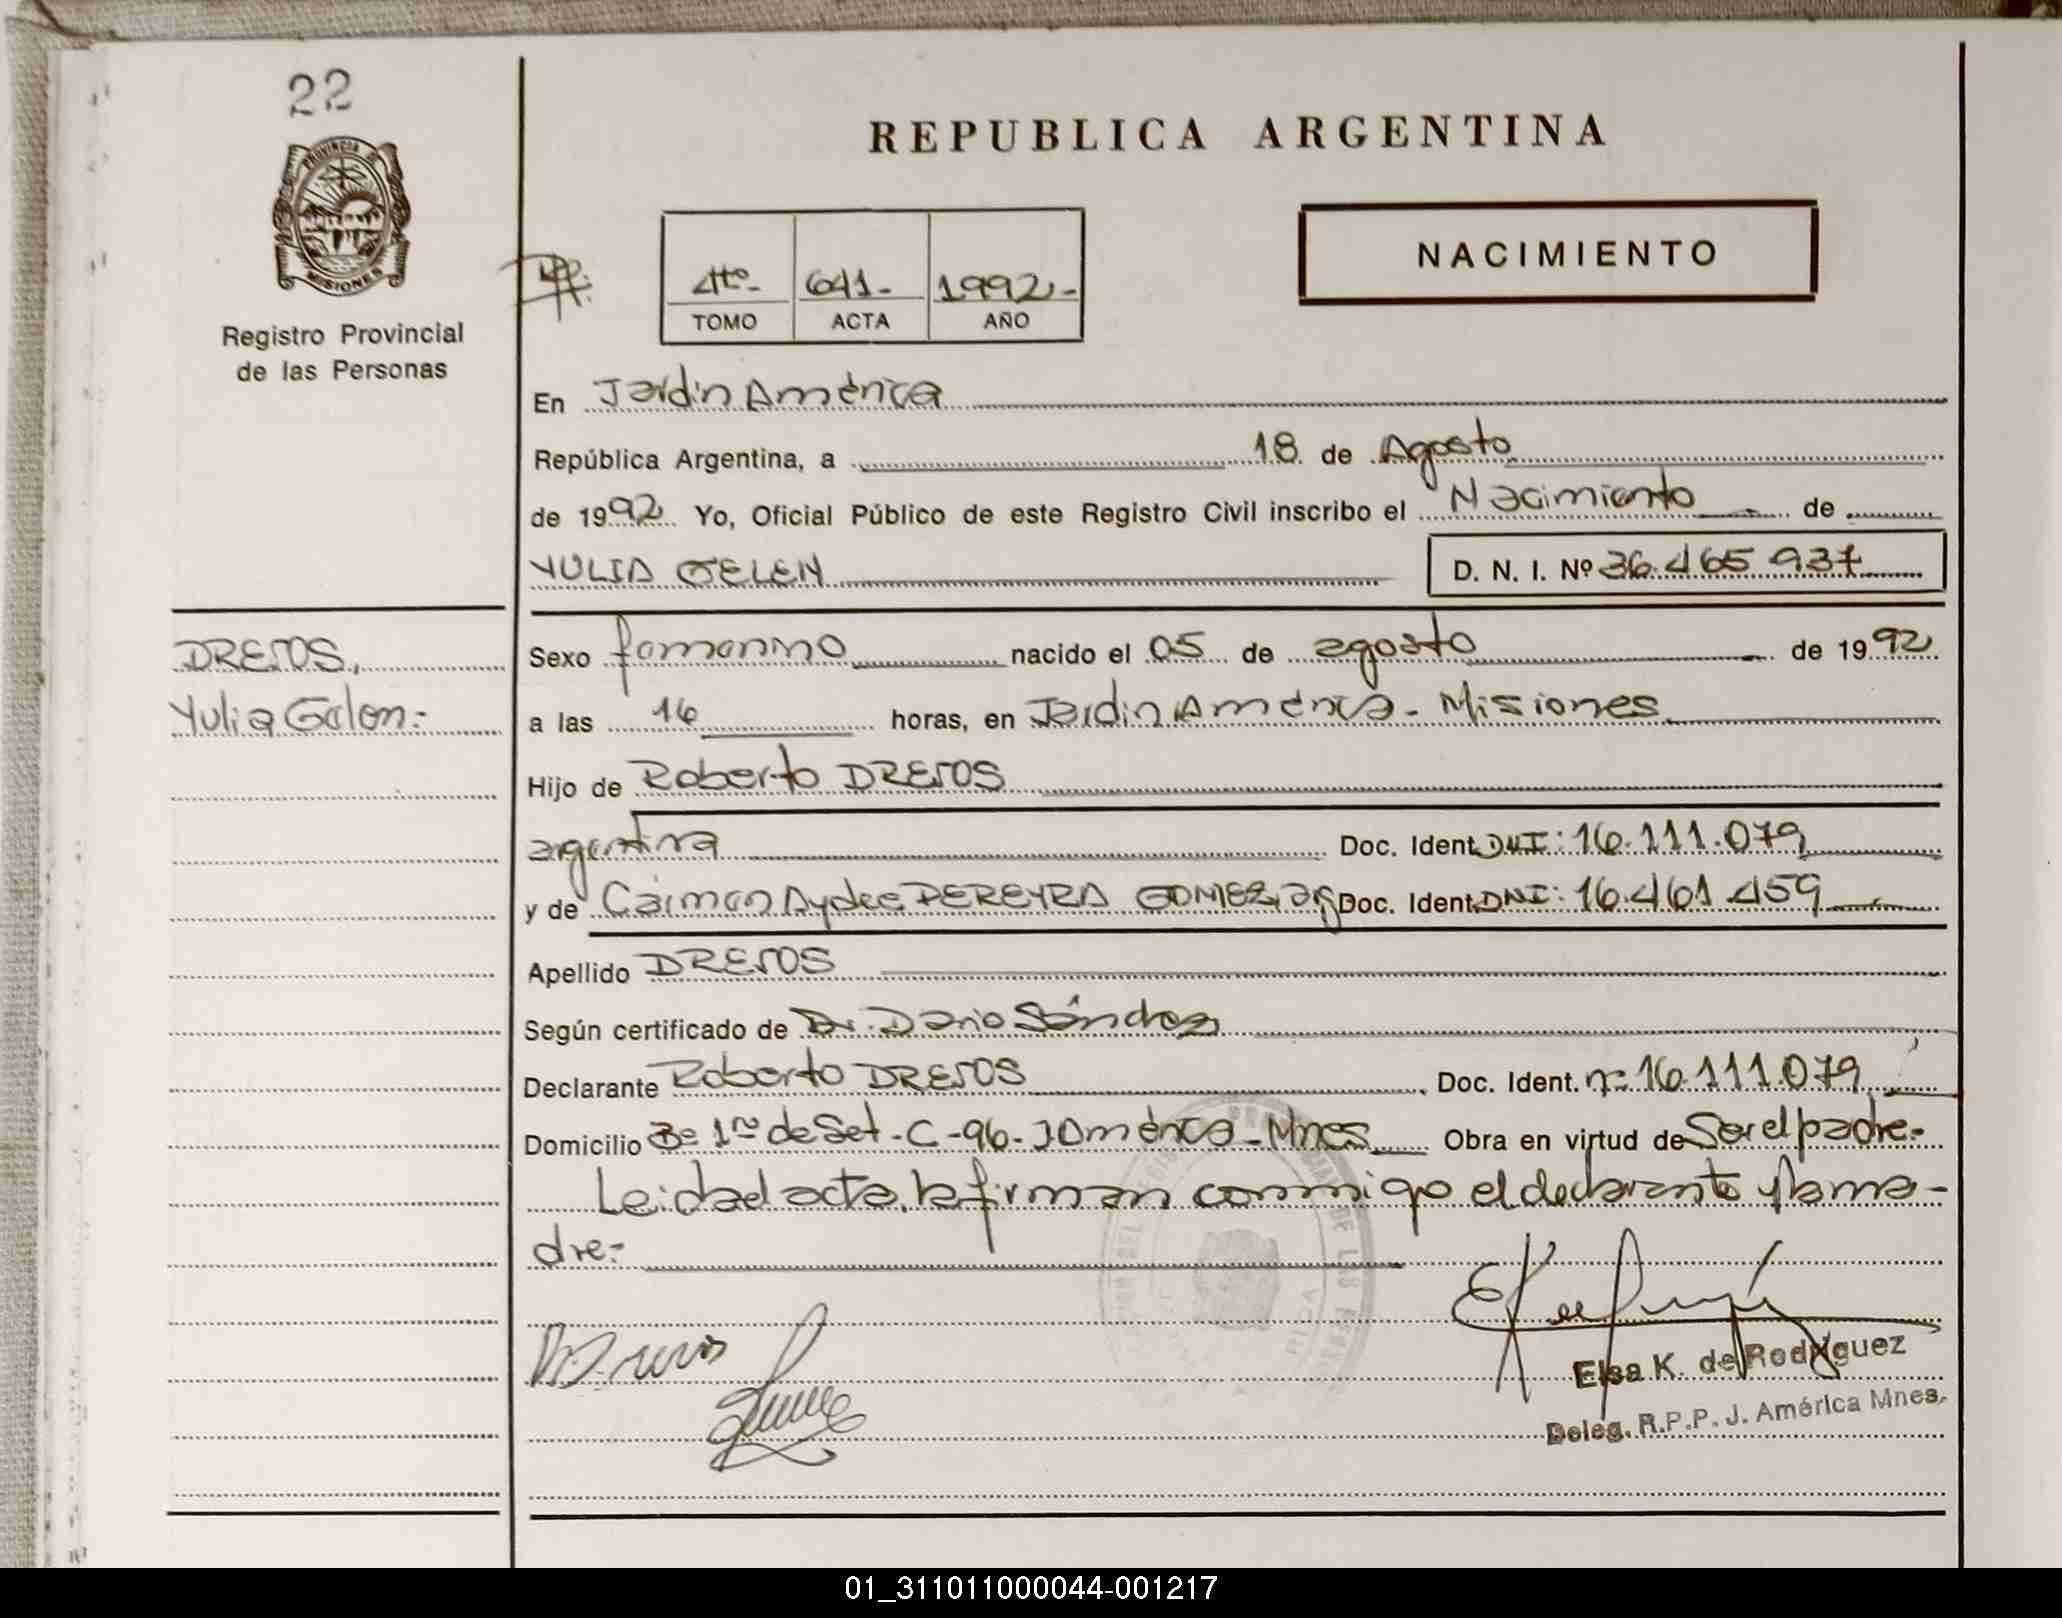 22
PROVINCIA DE
MISIONES
Registro Provincial
de las Personas
REPUBLICA ARGENTINA
NACIMIENTO
4to- 641- 1992-
TOMO ACTA AÑO
En Jardín América
República Argentina, a 18 de Agosto
de 1992 Yo, Oficial Público de este Registro Civil inscribo el Nacimiento de
YULIA GELEN D. N. I. Nº 36.465.937
DREJOS,
Yulia Gelen:-
Sexo femenino nacido el 05 de agosto de 1992
a las 16 horas, en Jardín América - Misiones
Hijo de Roberto DREJOS
argentina Doc. Ident. DNI: 16.111.079
y de Carmen Aydee PEREYRA GOMEZ, arg Doc. Ident. DNI: 16.461.459
Apellido DREJOS
Según certificado de Dr. Dario Sánchez
Declarante Roberto DREJOS Doc. Ident. nº 16.111.079
Domicilio Bº 1ro de Set - C-96- J América - Mnes Obra en virtud de Ser el padre-
Leida el acta, la firman conmigo el declarante y la ma-
dre:-
Elsa K. de Rodriguez
Deleg. R.P.P. J. América Mnes.
01_311011000044-001217